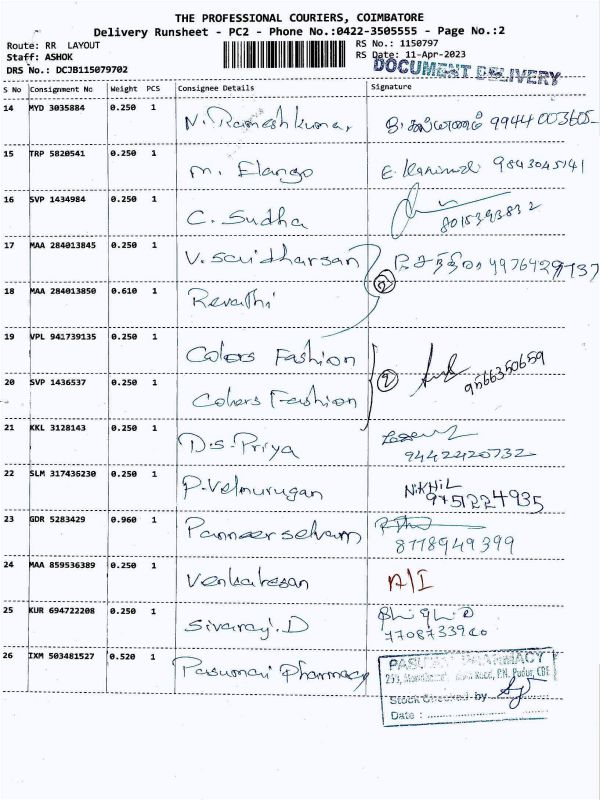 THE PROFESSIONAL COURIERS, COIMBATORE
Delivery Runsheet - PC2 - Phone No.:0422-3505555 - Page No.:2
Route: RR LAYOUT
RS No.: 1150797
Staff: ASHOK
RS Date: 11-Apr-2023
DRS No.: DCJB115079702
DOCUMENT DELIVERY
S No Consignment No Weight PCS Consignee Details Signature
14 MYD 3035884 0.250 1 N. Rameshkumar
15 TRP 5820541 0.250 1 M. Elango E. 9843045141
16 SVP 1434984 0.250 1 C. Sudha 8015393832
17 MAA 284013845 0.250 1 V. Saidharsan
18 MAA 284013850 0.610 1 Revathi
2
19 VPL 941739135 0.250 1 Colors Fashion
20 SVP 1436537 0.250 1 Colors Fashion
2 9566350659
21 KKL 3128143 0.250 1 D.S. Priya
9442420732
22 SLM 317436230 0.250 1 P. Velmurugan NIKHIL
9751224935
23 GDR 5283429 0.960 1 Panneerselvam
8778949399
24 MAA 859536389 0.250 1 Venkatesan A/I
25 KUR 694722208 0.250 1 Sivaraj. D
26 IXM 503481527 0.520 1 Pasumai Pharmacy
PASUMAI PHARMACY
Road, P.N. Pudur, CBE
Stock Checked by
Date :